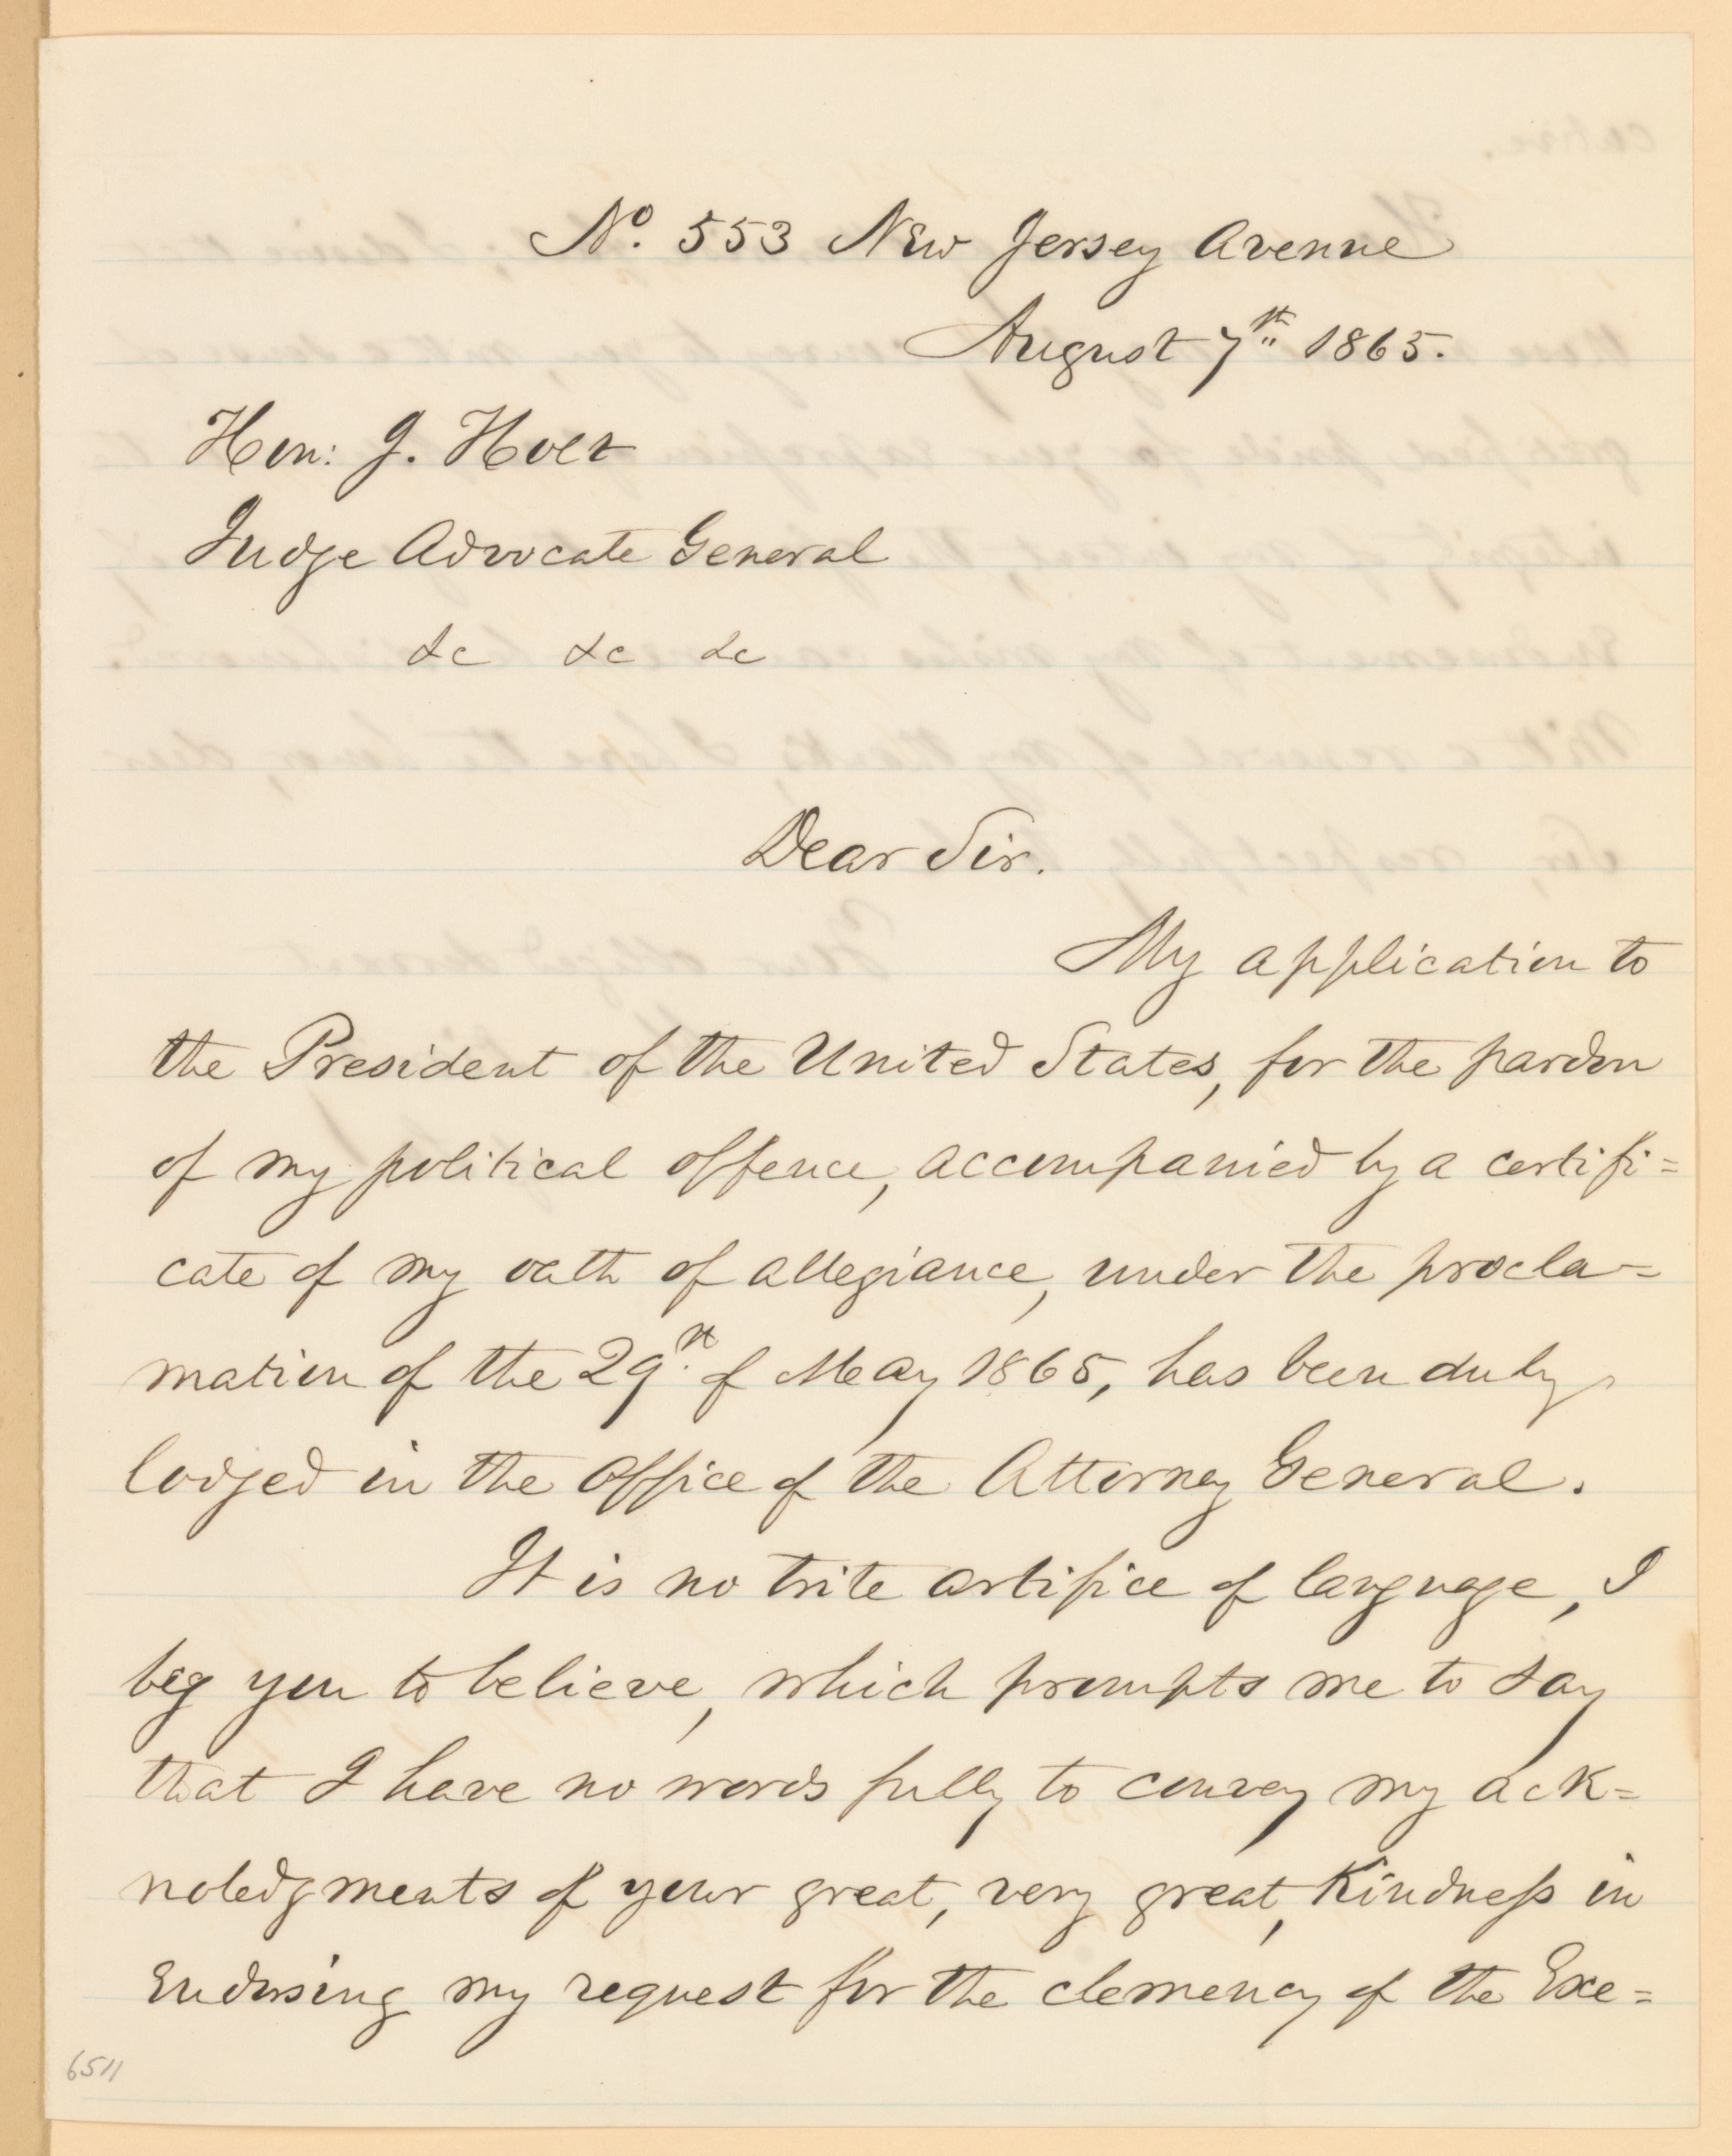 No. 553 New Jersey Avenue
August 7th 1865.
Hon: J. Holt
Judge Advocate General
&c &c &c
Dear Sir.
My application to
the President of the United States, for the pardon
of my political offence, accompanied by a certifi=
cate of my oath of allegiance, under the procla=
mation of the 29th of May 1865, has been duly
lodged in the office of the Attorney General.
It is no trite artifice of language, I
beg you to believe, which prompts me to say
that I have no words fully to convey my ack=
noledgments of your great, very great, kindness in
endorsing my request for the clemency of the Exe=
6511